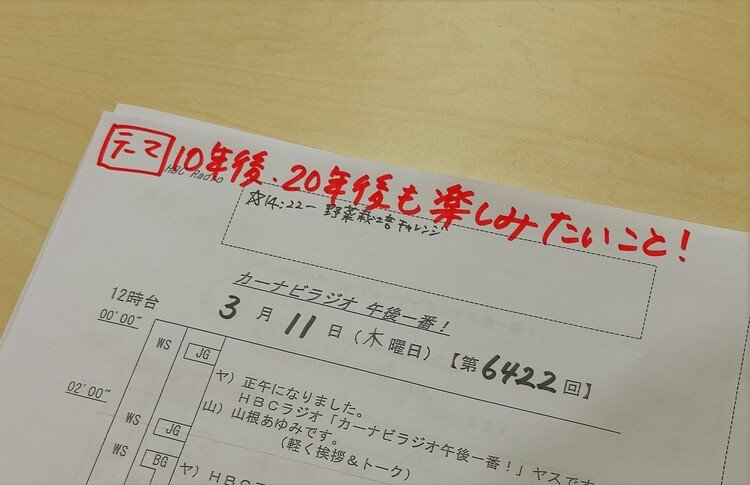 テーマ 10年後、20年後も楽しみたいこと!
HBC Radio
☆14:22ー 野菜栽培チャレンジ
カーナビラジオ 午後一番!
3月11日(木曜日)【第6422回】
12時台
00'00"
WS JG
ヤ)正午になりました。
HBCラジオ「カーナビラジオ午後一番!」ヤスです
山)山根あゆみです。
(軽く挨拶&トーク)
02'00"
WS JG
WS BG
ヤ)HBC